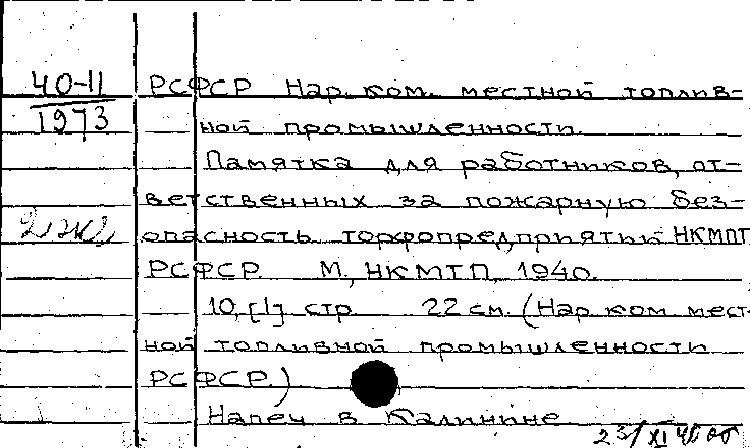 40-11
1973
РСФСР Нар. ком. местной топлив-
ной промышленности.
Памятка для работников, от-
ветственных за пожарную без-
опасность торфопредприятий НКМПТ
РСФСР. М., НКМТП, 1940.
10, [1] стр. 22 см. (Нар. ком мест-
ной топливной промышленности
РСФСР.)
Напеч. в Калинине
23/XI 40